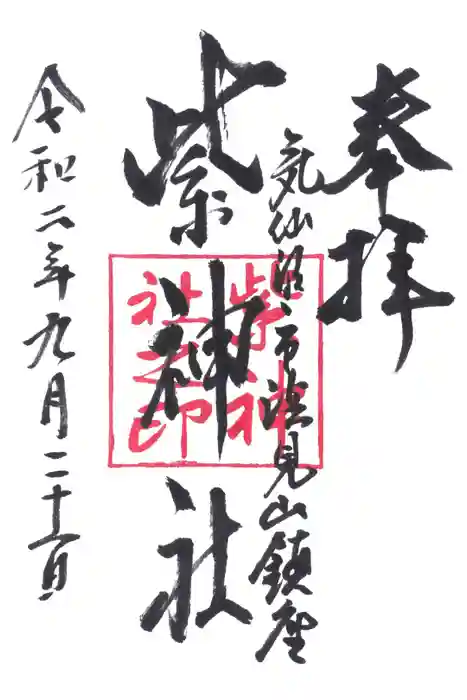 奉拝
気仙沼市浜見山鎮座
紫神社
紫神
社之印
令和二年九月二十二日